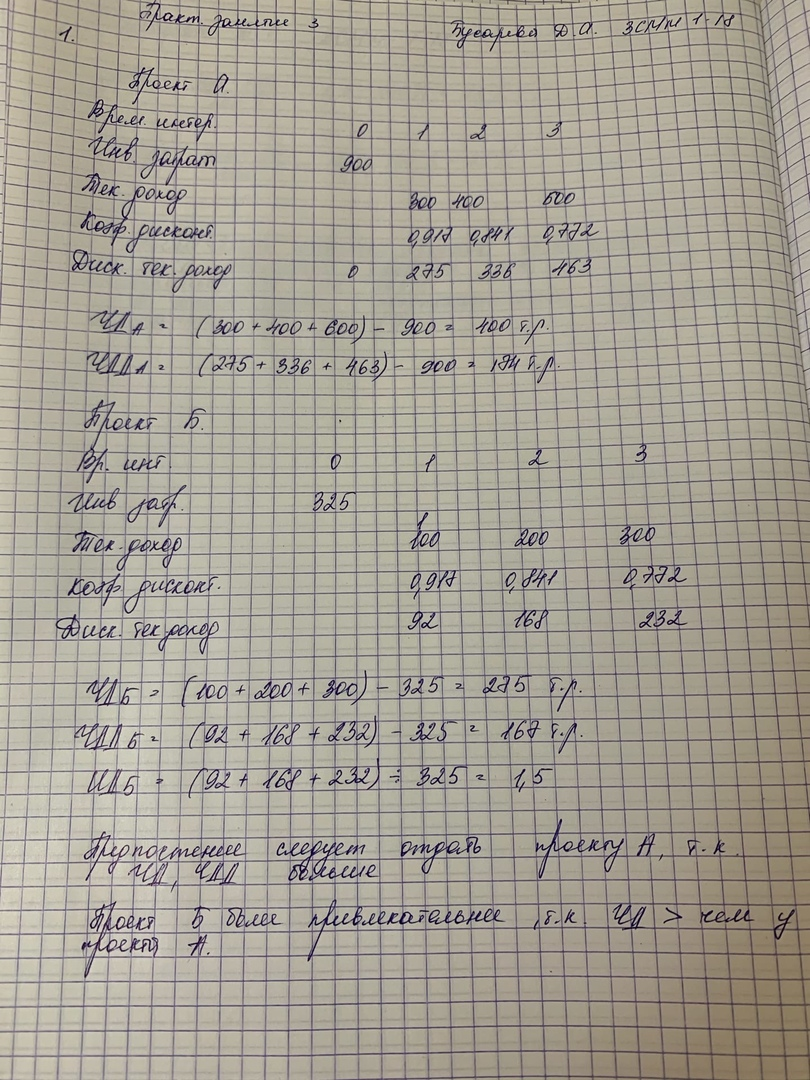 Практ. занятие 3 Бусарева Д.А. ЗСМм 1-18
1.
Проект А.
Врем. интер. 0 1 2 3
Инв. затрат 900
Тек. доход 300 400 600
Коэф. дисконт. 0,917 0,841 0,772
Диск. тек. доход 0 275 336 463
ЧДА = (300 + 400 + 600) - 900 = 400 т.р.
ЧДДА = (275 + 336 + 463) - 900 = 174 т.р.
Проект Б.
Вр. инт. 0 1 2 3
Инв затр. 325
Тек. доход 100 200 300
Коэф дисконт. 0,917 0,841 0,772
Диск. тек доход 92 168 232
ЧДБ = (100 + 200 + 300) - 325 = 275 т.р.
ЧДДБ = (92 + 168 + 232) - 325 = 167 т.р.
ИДБ = (92 + 168 + 232) ÷ 325 = 1,5
Предпостение следует отдать проекту А, т.к.
ЧД, ЧДД больше
Проект Б более привлекательнее, т.к. > чем у
проекта А.